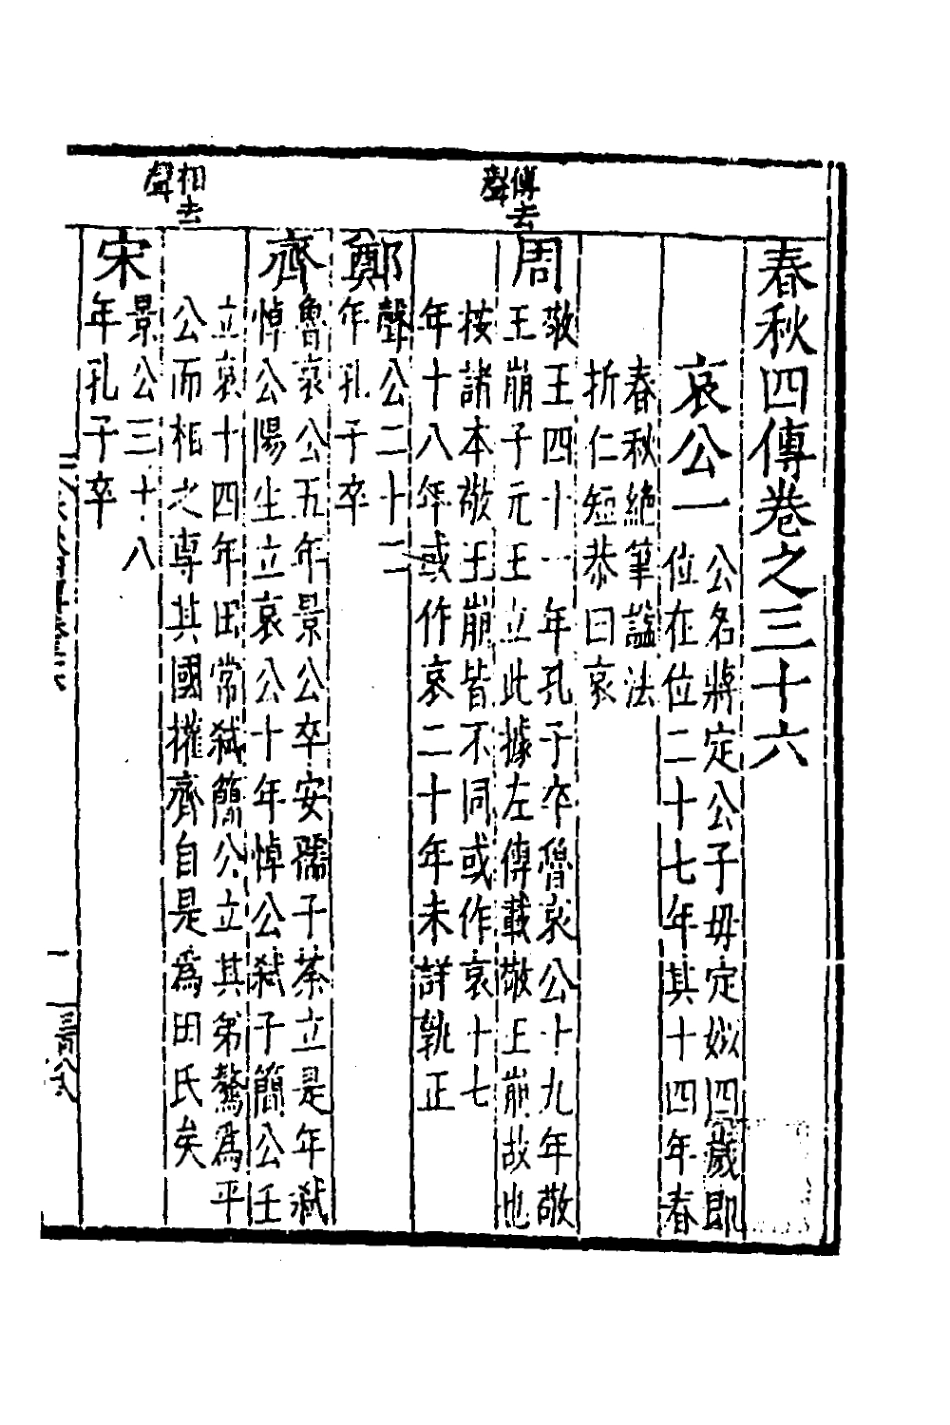 春秋四傳卷之三十六
哀公一
公名蔣定公子毋定姒四歲即
位在位二十七年其十四年春
春秋絶筆謚法
折仁短恭曰哀
傳去
聲
周
敬王四十一年孔子卒魯哀公十九年敬
王崩子元王立此據左傳載敬王崩故也
按諸本敬王崩皆不同或作哀十七
年十八年或作哀二十年未詳孰正
鄭
聲公二十二
年孔子卒
齊
魯哀公五年景公卒安孺子荼立是年弑
悼公陽生立哀公十年悼公弑子簡公壬
相去
聲
立哀十四年田常弑簡公立其弟驁爲平
公而相之專其國權齊自是爲田氏矣
宋
景公三十八
年孔子卒
一